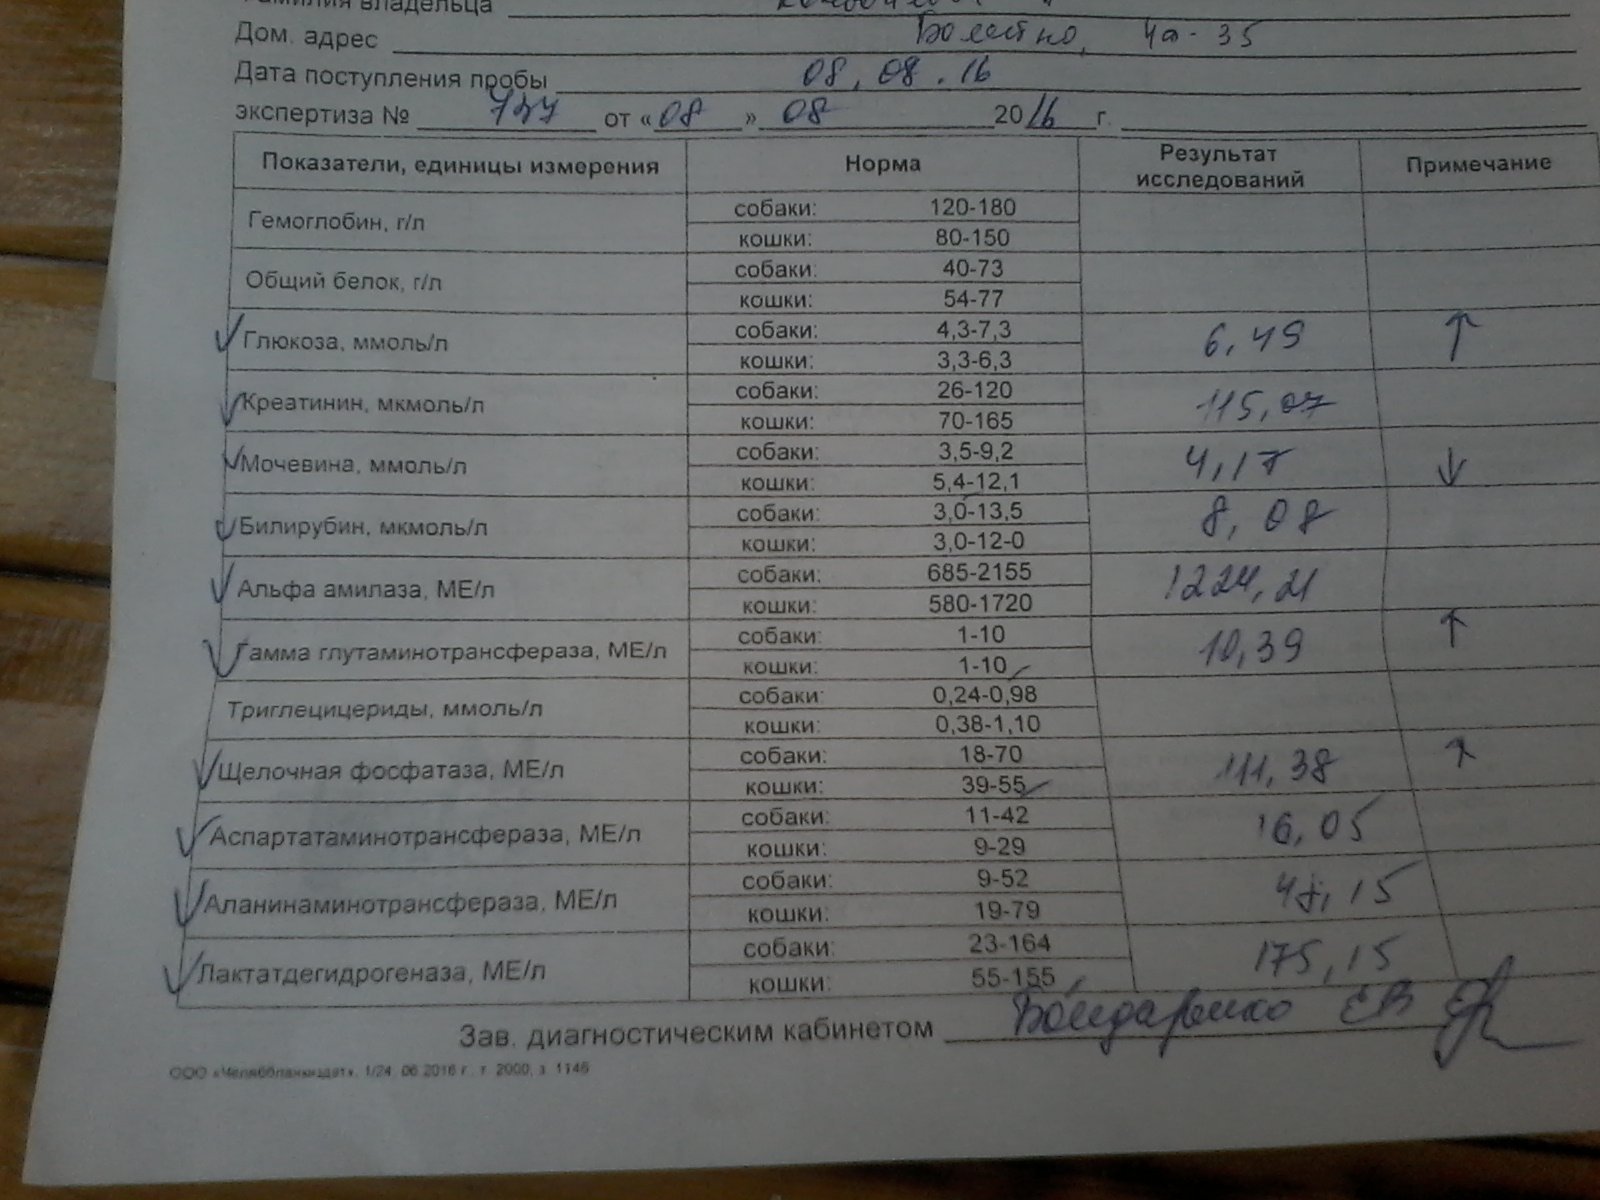 Фамилия владельца
Дом. адрес 4а-35
Дата поступления пробы 08.08.16
экспертиза № от «08» 08 2016 г.
Показатели, единицы измерения Норма Результат исследований Примечание
Гемоглобин, г/л собаки: 120-180
кошки: 80-150
Общий белок, г/л собаки: 40-73
кошки: 54-77
Глюкоза, ммоль/л собаки: 4,3-7,3 6,49 ↑
кошки: 3,3-6,3
Креатинин, мкмоль/л собаки: 26-120 115,07
кошки: 70-165
Мочевина, ммоль/л собаки: 3,5-9,2 4,17 ↓
кошки: 5,4-12,1
Билирубин, мкмоль/л собаки: 3,0-13,5 8,08
кошки: 3,0-12-0
Альфа амилаза, МЕ/л собаки: 685-2155 1224,21
кошки: 580-1720
Гамма глутаминотрансфераза, МЕ/л собаки: 1-10 10,39 ↑
кошки: 1-10
Триглецицериды, ммоль/л собаки: 0,24-0,98
кошки: 0,38-1,10
Щелочная фосфатаза, МЕ/л собаки: 18-70 111,38 ↑
кошки: 39-55
Аспартатаминотрансфераза, МЕ/л собаки: 11-42 16,05
кошки: 9-29
Аланинаминотрансфераза, МЕ/л собаки: 9-52
кошки: 19-79
Лактатдегидрогеназа, МЕ/л собаки: 23-164 175,15
кошки: 55-155
Зав. диагностическим кабинетом Бондаренко ЕВ
ООО «Челябблакиздат», 1/24. 06.2016 г., т. 2000, з. 1146